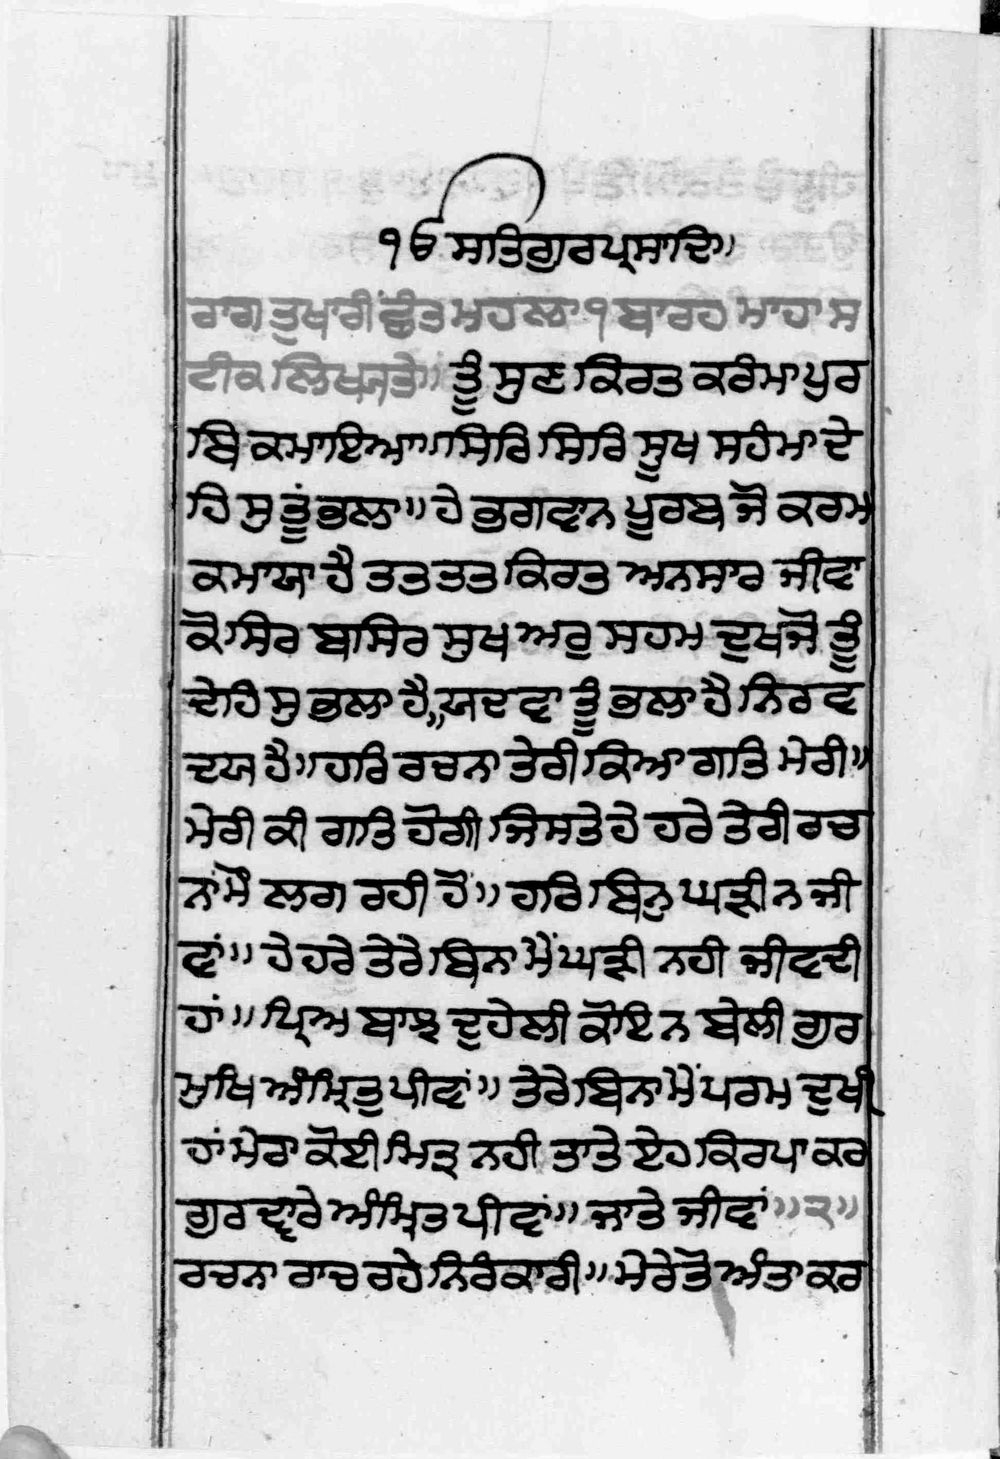 ੴ ਸਤਿਗੁਰ ਪ੍ਰਸਾਦਿ॥
ਰਾਗ ਤੁਖਾਰੀ ਛੰਤ ਮਹਲਾ ੧ ਬਾਰਹ ਮਾਹਾ ਸ
ਟੀਕ ਲਿਖਯਤੇ॥ ਤੂੰ ਸੁਣ ਕਿਰਤ ਕਰੰਮਾ ਪੁਰ
ਬਿ ਕਮਾਇਆ॥ ਸਿਰਿ ਸਿਰਿ ਸੂਖ ਸਹੰਮਾ ਦੇ
ਹਿ ਸੁ ਤੂੰ ਭਲਾ॥ ਹੇ ਭਗਵਾਨ ਪੂਰਬ ਜੋ ਕਰਮ
ਕਮਾਯਾ ਹੈ ਤਤ ਤਤ ਕਿਰਤ ਅਨਸਾਰ ਜੀਵਾ
ਕੋ ਸਿਰ ਬਾਸਿਰ ਸੁਖ ਅਰੁ ਸਹਮ ਦੁਖ ਜੋ ਤੂੰ
ਦੇਹਿ ਸੁ ਭਲਾ ਹੈ॥ ਯਦਵਾ ਤੂੰ ਭਲਾ ਹੈ ਨਿਰਵ
ਦਯ ਹੈ॥ ਹਰਿ ਰਚਨਾ ਤੇਰੀ ਕਿਆ ਗਤਿ ਮੇਰੀ॥
ਮੇਰੀ ਕੀ ਗਤਿ ਹੋਗੀ ਜਿਸਤੇ ਹੇ ਹਰੇ ਤੇਰੀ ਰਚ
ਨਾਂ ਮੈ ਲਗ ਰਹੀ ਹੋਂ॥ ਹਰਿ ਬਿਨੁ ਘੜੀ ਨ ਜੀ
ਵਾਂ॥ ਹੇ ਹਰੇ ਤੇਰੇ ਬਿਨਾ ਮੈਂ ਘੜੀ ਨਹੀ ਜੀਵਦੀ
ਹਾਂ॥ ਪ੍ਰਿਅ ਬਾਝ ਦੁਹੇਲੀ ਕੋਇ ਨ ਬੇਲੀ ਗੁਰ
ਮੁਖਿ ਅੰਮ੍ਰਿਤੁ ਪੀਵਾਂ॥ ਤੇਰੇ ਬਿਨਾ ਮੈਂ ਪਰਮ ਦੁਖੀ
ਹਾਂ ਮੇਰਾ ਕੋਈ ਮਿਤ੍ਰ ਨਹੀ ਤਾਤੇ ਏਹ ਕਿਰਪਾ ਕਰ
ਗੁਰ ਦ੍ਵਾਰੇ ਅੰਮ੍ਰਿਤ ਪੀਵਾਂ॥ ਜਾਤੇ ਜੀਵਾਂ॥੨॥
ਰਚਨਾ ਰਾਚ ਰਹੇ ਨਿਰੰਕਾਰੀ॥ ਮੇਰੇ ਤੋ ਅੰਤਾਕਰ